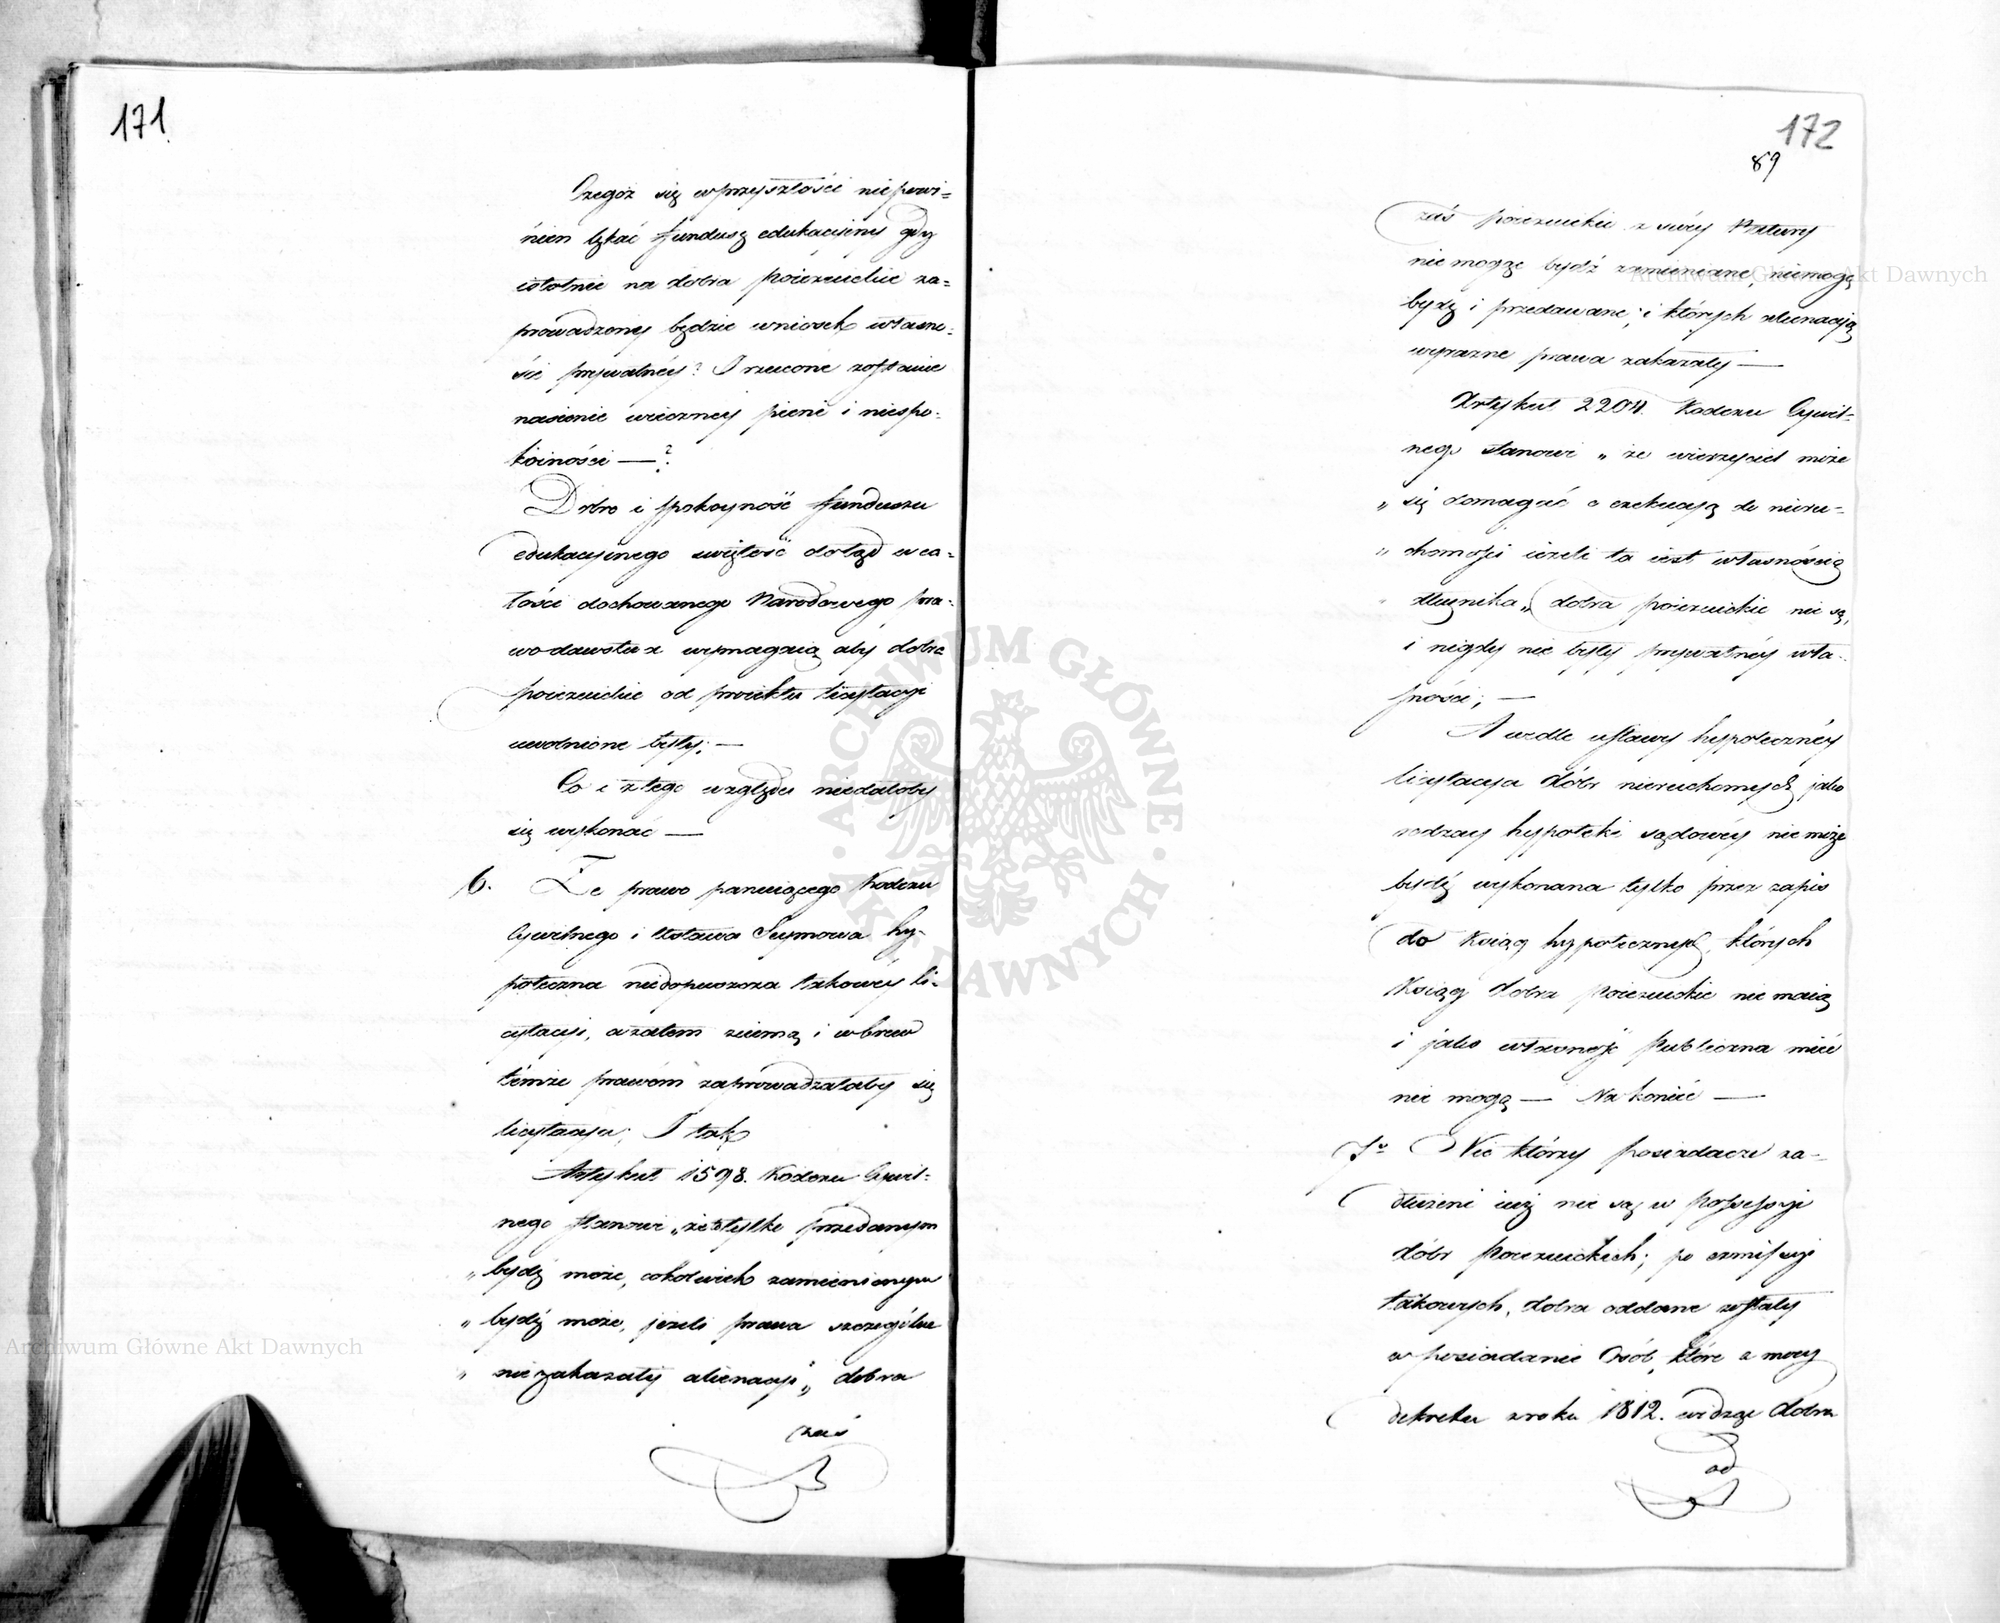 171.
Czegoż się w przyszłości niepowi=
nien lękać Fundusz edukacyiny gdy
istotnie na dobra poiezuickie za=
prowadzony będzie wniosek własno=
ści prywatnéy? I rzucone zostanie
nasienie wieczney pieni i niespo=
koiności — ?
Dobro i spokoyność Funduszu
edukacyinego świętość dotąd w ca=
łości dochowanego Narodowego pra=
wodawstwa wymagaią aby dobra
poiezuickie od proiektu licytacyi
uwolnione były; —
Co i z tego względu niedałoby
się wykonać —
6. Że prawo panuiącego Kodexu
Cywilnego i Ustawa Seymowa hy=
poteczna niedopuszcza takowéy li=
cytacyi, a zatem i wbrew
tymże prawom zaprowadzałaby się
licytacya; I tak
Artykuł 1598. Kodexu Cywil=
nego stanowi „że to tylko przedanym
„bydź może, cokolwiek zamienionym
„bydź może, jeżeli prawa szczególne
„niezakazały alienacyi„ dobra
zaś
172
89
zaś poiezuickie z swéy Natury
nie mogąc bydź zamieniane, niemogą
bydź i przedawane; i których alienacyią
wyraźne prawa zakazały —
Artykuł 2204. Kodexu Cywil=
nego stanowi „że wierzyciel może
„się domagać o exekucyą do nieru=
„chomości ieżeli ta iest własnością
dłużnika„ dobra poiezuickie nie są,
i nigdy nie były prywatnéy wła=
sności; —
A wedle ustawy hypotecznéy
licytacya dóbr nieruchomych jako
rodzay hypoteki sądowéy nie może
bydź wykonana tylko przez zapis
do Xsiąg hypotecznych, których
Xsiąg dobra poiezuickie nie maią
i jako własność Publiczna mieć
nie mogą — Na koniec —
7o Nie którzy posiadacze za=
dłużeni iuż nie są w possessyi
dóbr Poiezuickich; po exmissyi
takowych, dobra oddane zostały
w posiadanie Osób, które z mocy
dekretu z roku 1812. widząc dobra
od
Archiwum Główne Akt Dawnych
Archiwum Główne Akt Dawnych
ARCHIWUM GŁÓWNE · AKT DAWNYCH ·